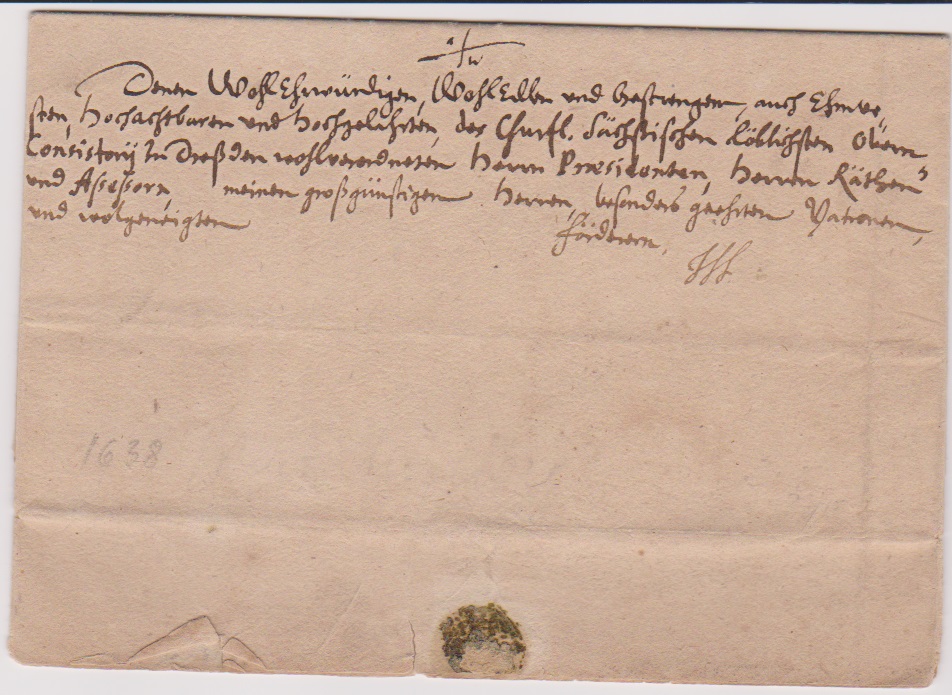 Denen WohlEhrwürdigen, WohlEdlen und Gestrengen, auch Ehrnve,
sten, Hochachtbaren und Hochgelahrten, des Churfl. Sächsischen Löblichsten Obern
Consistorij zu Dreßden wohlverordneten Herrn Præsidenten, Herrn Räthen
und Assessorn, meinen großgünstigen Herren, besonders geehrten Patronen,
und wolgeneigten Förderern,
1638